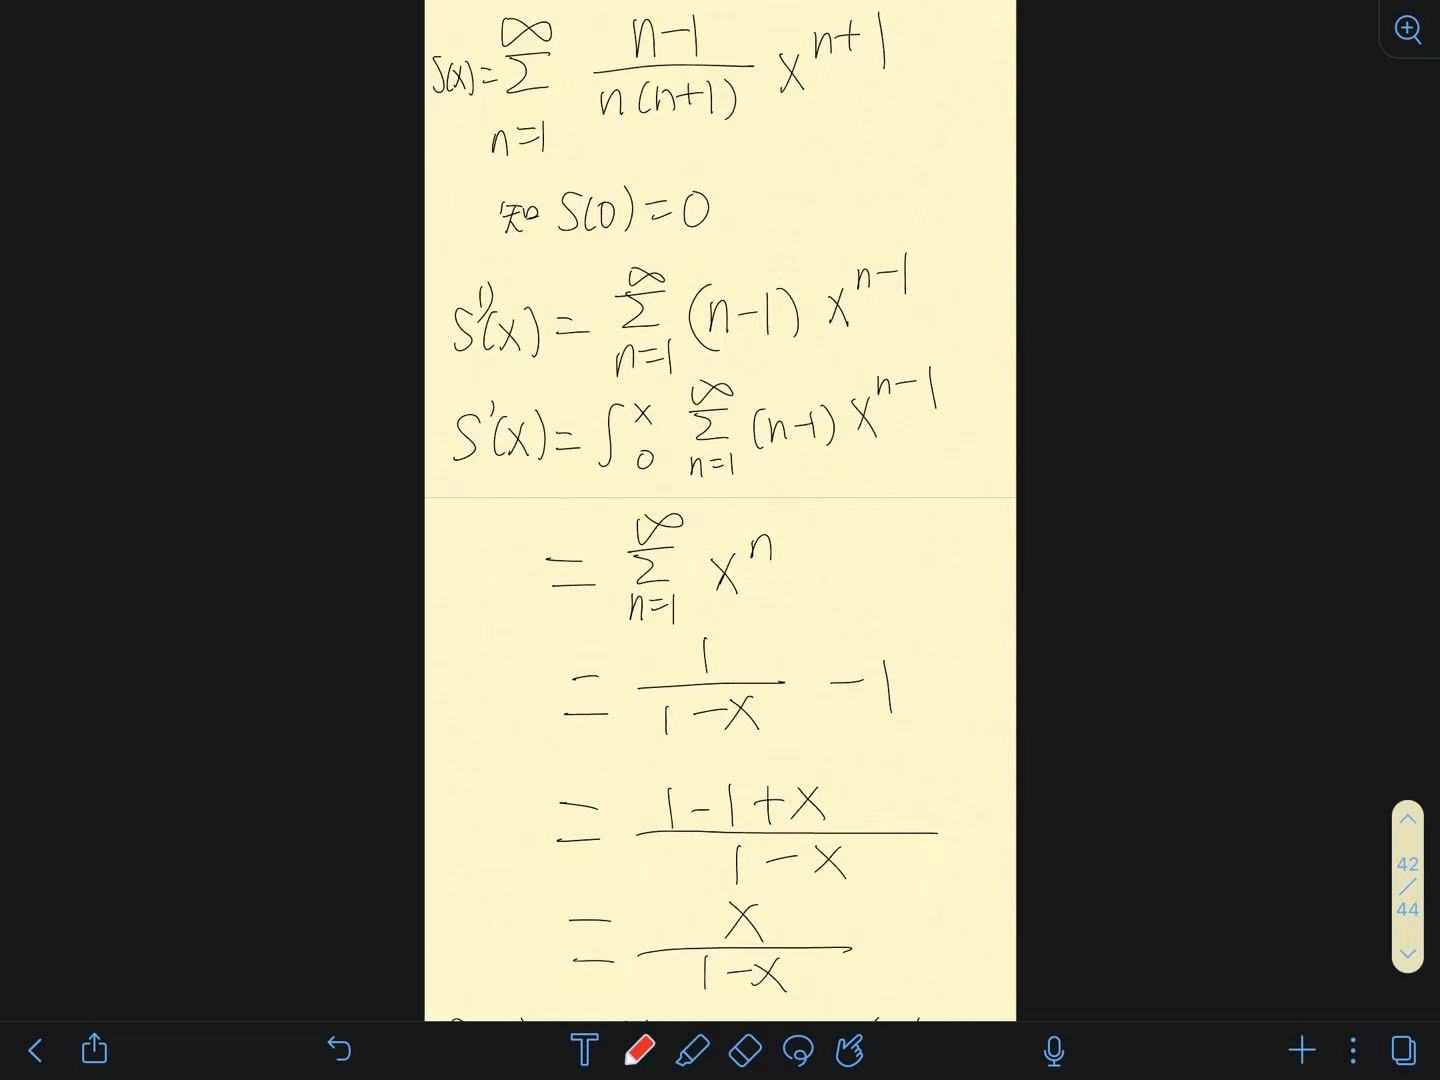 S(x)=∑_{n=1}^{∞} \frac{n-1}{n(n+1)} x^{n+1}
知 S(0)=0
S''(x)=∑_{n=1}^{∞} (n-1) x^{n-1}
S'(x)=∫_0^x ∑_{n=1}^{∞} (n-1) x^{n-1}
=∑_{n=1}^{∞} x^n
=\frac{1}{1-x} -1
=\frac{1-1+x}{1-x}
=\frac{x}{1-x}
42
/
44
T